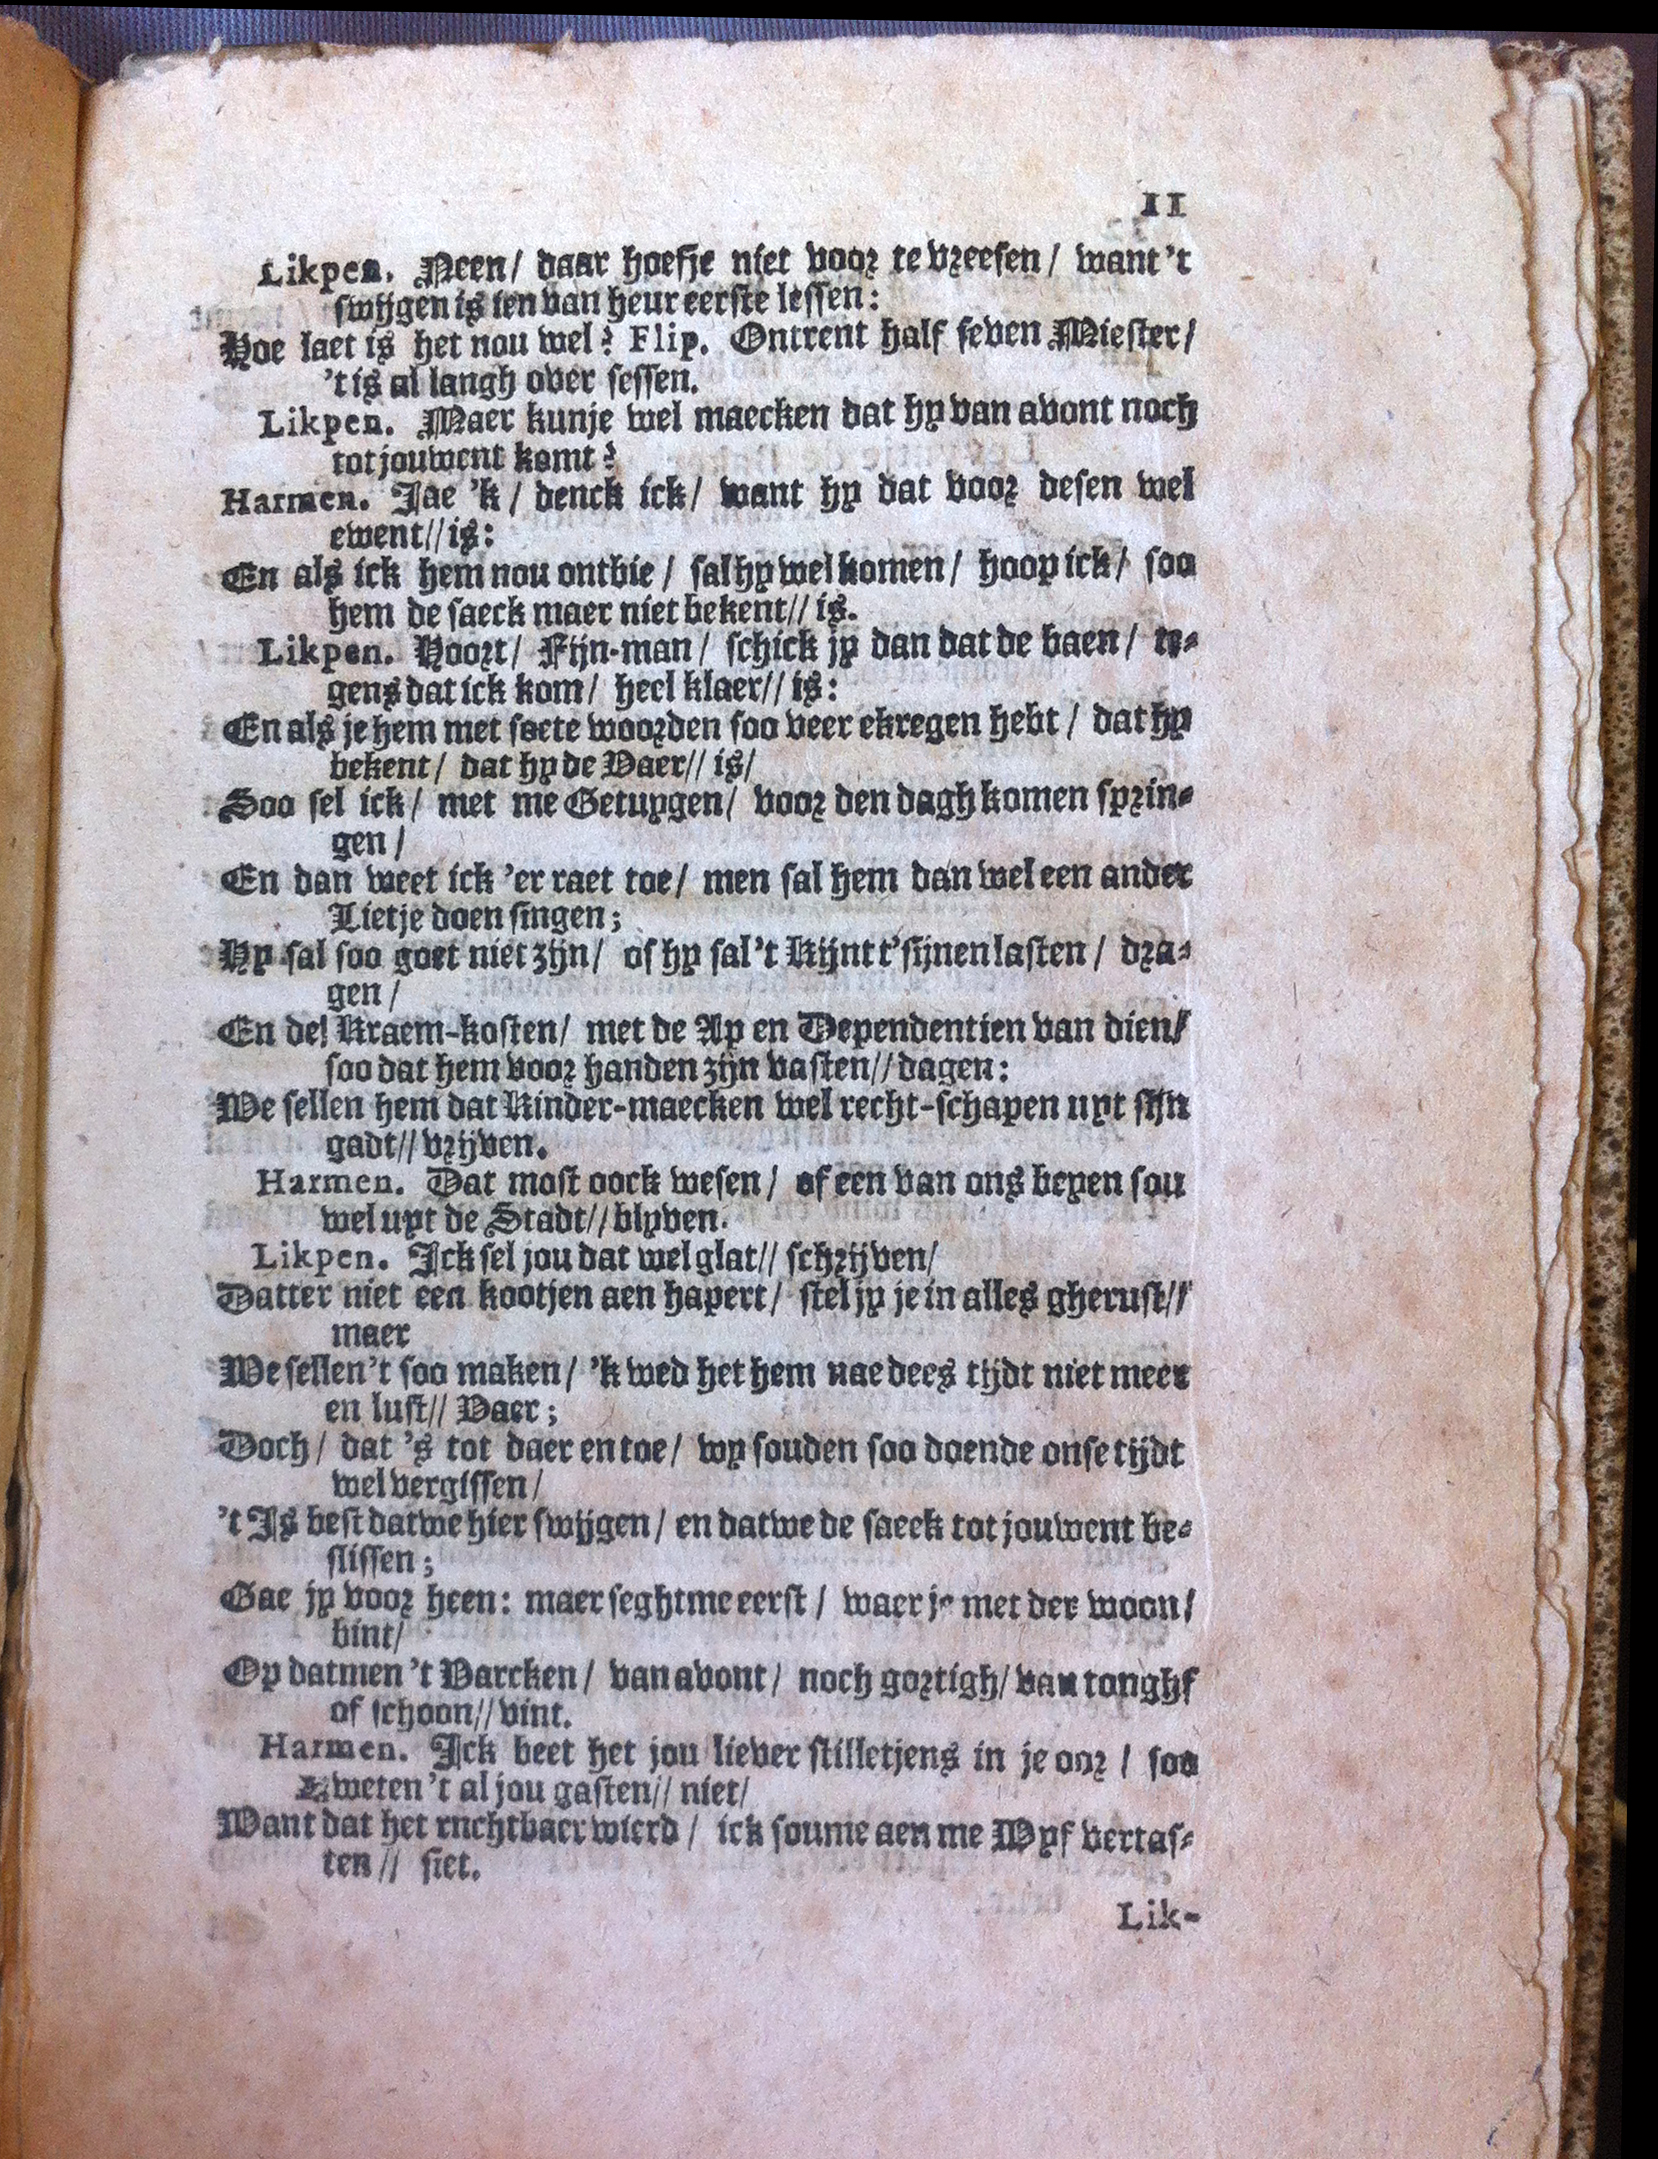 11
Likpen. Neen/ daar hoefje niet voor te vreesen/ want 't
swijgen is ien van heur eerste lessen:
Hoe laet is het nou wel? Flip. Ontrent half seven Miester/
't is al langh over sessen.
Likpen. Maer kunje wel maecken dat hy van avont noch
tot jouwent komt?
Harmen. Jae 'k/ denck ick/ want hy dat voor desen wel
ewent// is:
En als ick hem nou ontbie/ sal hy wel komen/ hoop ick/ soo
hem de saeck maer niet bekent// is.
Likpen. Hoort/ Fijn-man/ schick jy dan dat de baen/ te-
gens dat ick kom/ heel klaer// is:
En als je hem met soete woorden soo veer ekregen hebt/ dat hy
bekent/ dat hy de Vaer// is/
Soo sel ick/ met me Getuygen/ voor den dagh komen sprin-
gen/
En dan weet ick 'er raet toe/ men sal hem dan wel een ander
Lietje doen singen;
Hy sal soo goet niet zijn/ of hy sal 't Kijnt t'sijnen lasten/ dra-
gen/
En de Kraem-kosten/ met de Ap en Dependentien van dien/
soo dat hem voor handen zijn vasten// dagen:
We sellen hem dat Kinder-maecken wel recht-schapen uyt sijn
gadt// vrijven.
Harmen. Dat most oock wesen/ of een van ons beyen sou
wel uyt de Stadt// blyven.
Likpen. Ick sel jou dat wel glat// schrijven/
Datter niet een kootjen aen hapert/ stel jy je in alles gherust//
maer
We sellen 't soo maken/ 'k wed het hem nae dees tijdt niet meer
en lust// Vaer;
Doch/ dat 's tot daer en toe/ wy souden soo doende onse tijdt
wel vergissen/
't Is best datwe hier swijgen/ en datwe de saeck tot jouwent be-
slissen;
Gae jy voor heen: maer seghtme eerst/ waer je met der woon/
bint/
Op datmen 't Varcken/ van avont/ noch gortigh/ van tongh
of schoon// vint.
Harmen. Ick beet het jou liever stilletjens in je oor/ soo
weten 't al jou gasten// niet/
Want dat het ruchtbaer wierd/ ick soume aen me Wyf vertas-
ten// siet.
Lik-